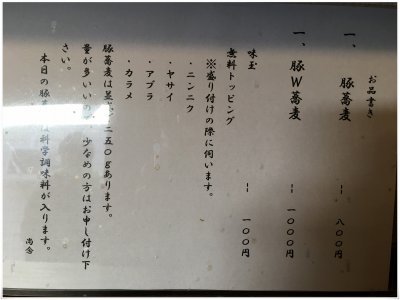 お品書き
一、豚蕎麦 = 八〇〇円
一、豚W蕎麦 = 一〇〇〇円
味玉 = 一〇〇円
無料トッピング
※盛り付けの際に伺います。
・ニンニク
・ヤサイ
・アブラ
・カラメ
豚蕎麦は並 二五〇gあります。
量が多いい 少なめの方はお申し付け下
さい。
本日の豚 は科学調味料が入ります。
尚念